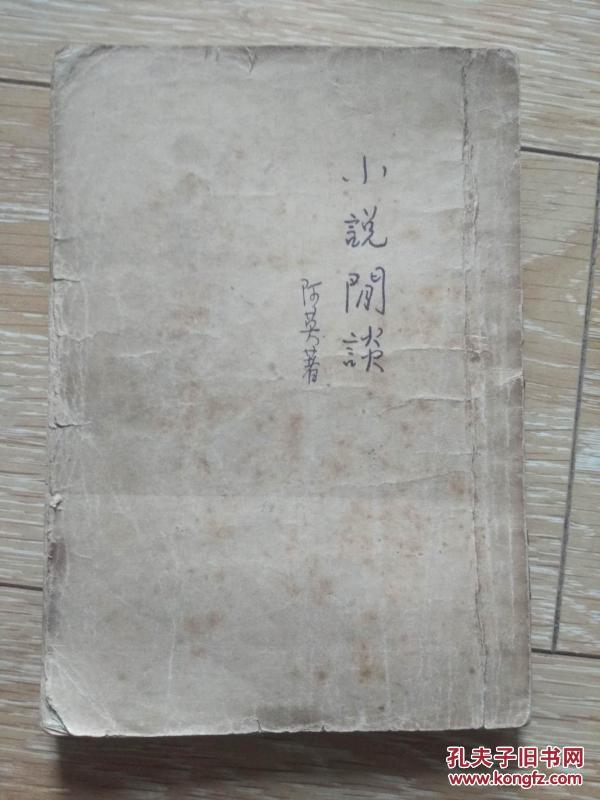 小說閒談
阿英著
孔夫子旧书网
www.kongfz.com